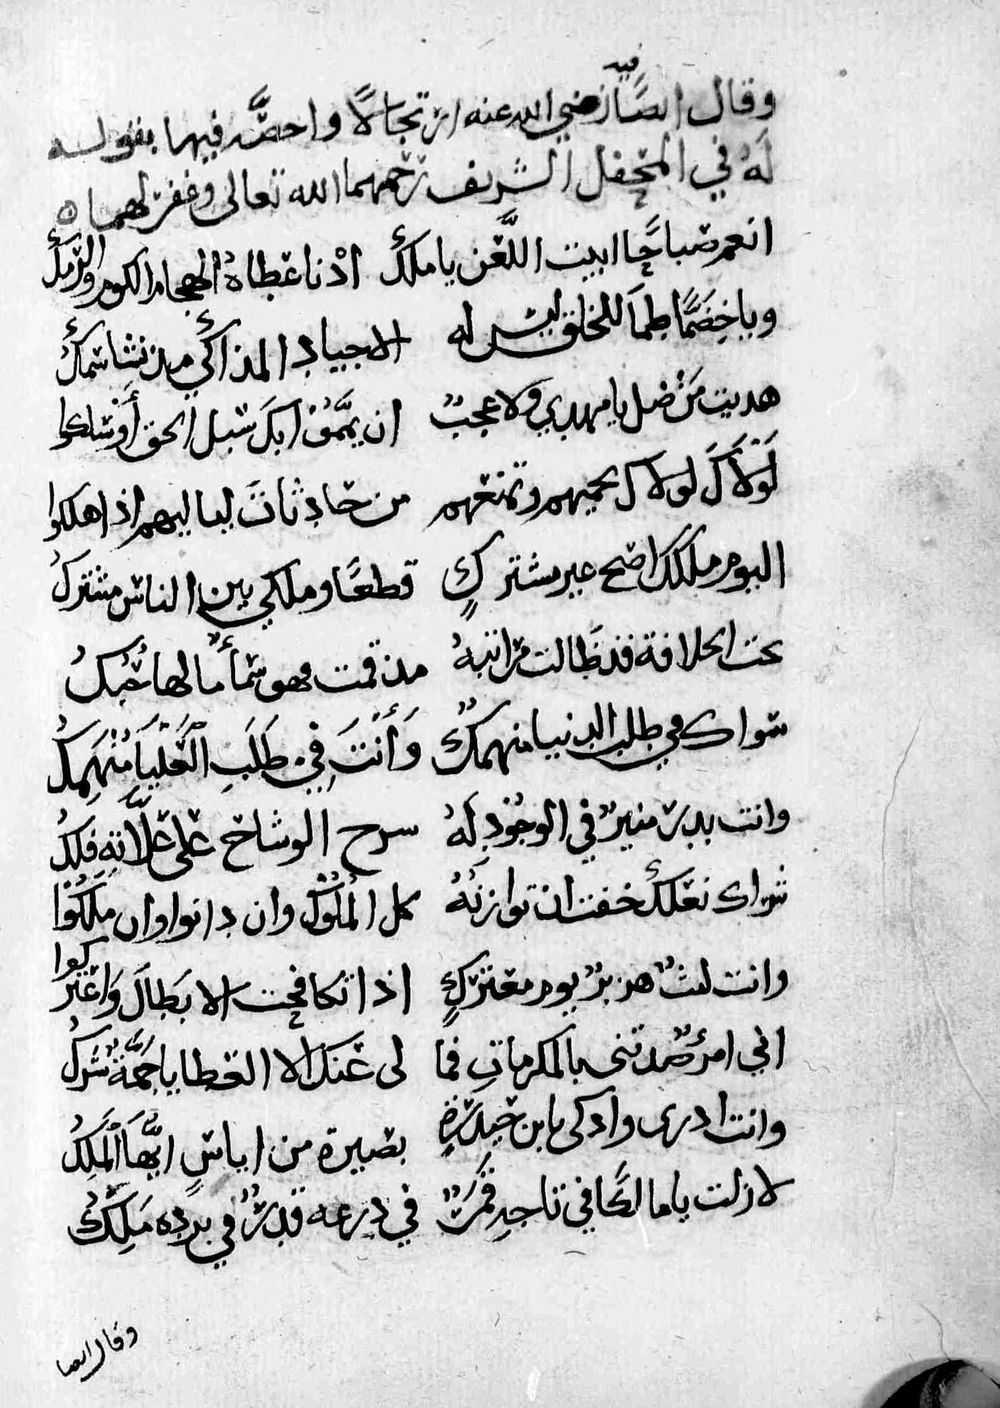 وقال ايضًا رضي الله عنه ارتجالًا واحضَّه فيها بقوله
لهُ في المحفل الشريف رحمهما الله تعالى وغفر لهما
انعم صباحًا ابيت اللَّعن يا ملكُ ادْنا عطاهُ الهجام الكوم والرمكُ
ويا خِضَمًّا طمَا للخلق ليس له الا جياد المذاكي مذ نشا سمكُ
هديت مَنْ ضل يا مهدي ولا عجبٌ ان يمَّمُوا بكَ سبل الحق أوْ سلكوا
لَوْلاَكَ لولاك تحميهم وتمنعهم من حادثات لياليهم اذا هلكوا
اليوم ملكك اضحى غير مشتركٍ قطعًا وملكي بين الناس مشتركُ
تحت الخلافة قد طالت مراتبهُ مذ قمت فهو سماءٌ ما لها حُبُكُ
سواك في طلب الدنيا منهمكٌ وَأَنْتَ فِي طَلَبِ الْعَلْيَا مُنْهَمِكُ
وانت بدر منيرٌ في الوجُوْدِ لهُ سرح الوشاح على علَّاتهِ فلكُ
شراك نعلكَ خفت ان توازنَهُ كل الْمُلُوْكِ وان دانوا وان مَلَكُوْا
وانت ليثٌ هزبرٌ يوم معتركٍ اذا تكافحت الابطالَ وَاعْتركوا
اني امرءٌ صدتني بالمكرمات فما لى عَنكَ الا العطايا جمَّةٌ شركُ
وانت ادرى واذكى يا بن حيدرةٍ بصيرة من اياسٍ ايُّهَا الْمَلِكُ
لا زلت يا مالكًا في تاجه قمرٌ في درعه قدرٌ في برده مَلِكٌ
وقال ايضا